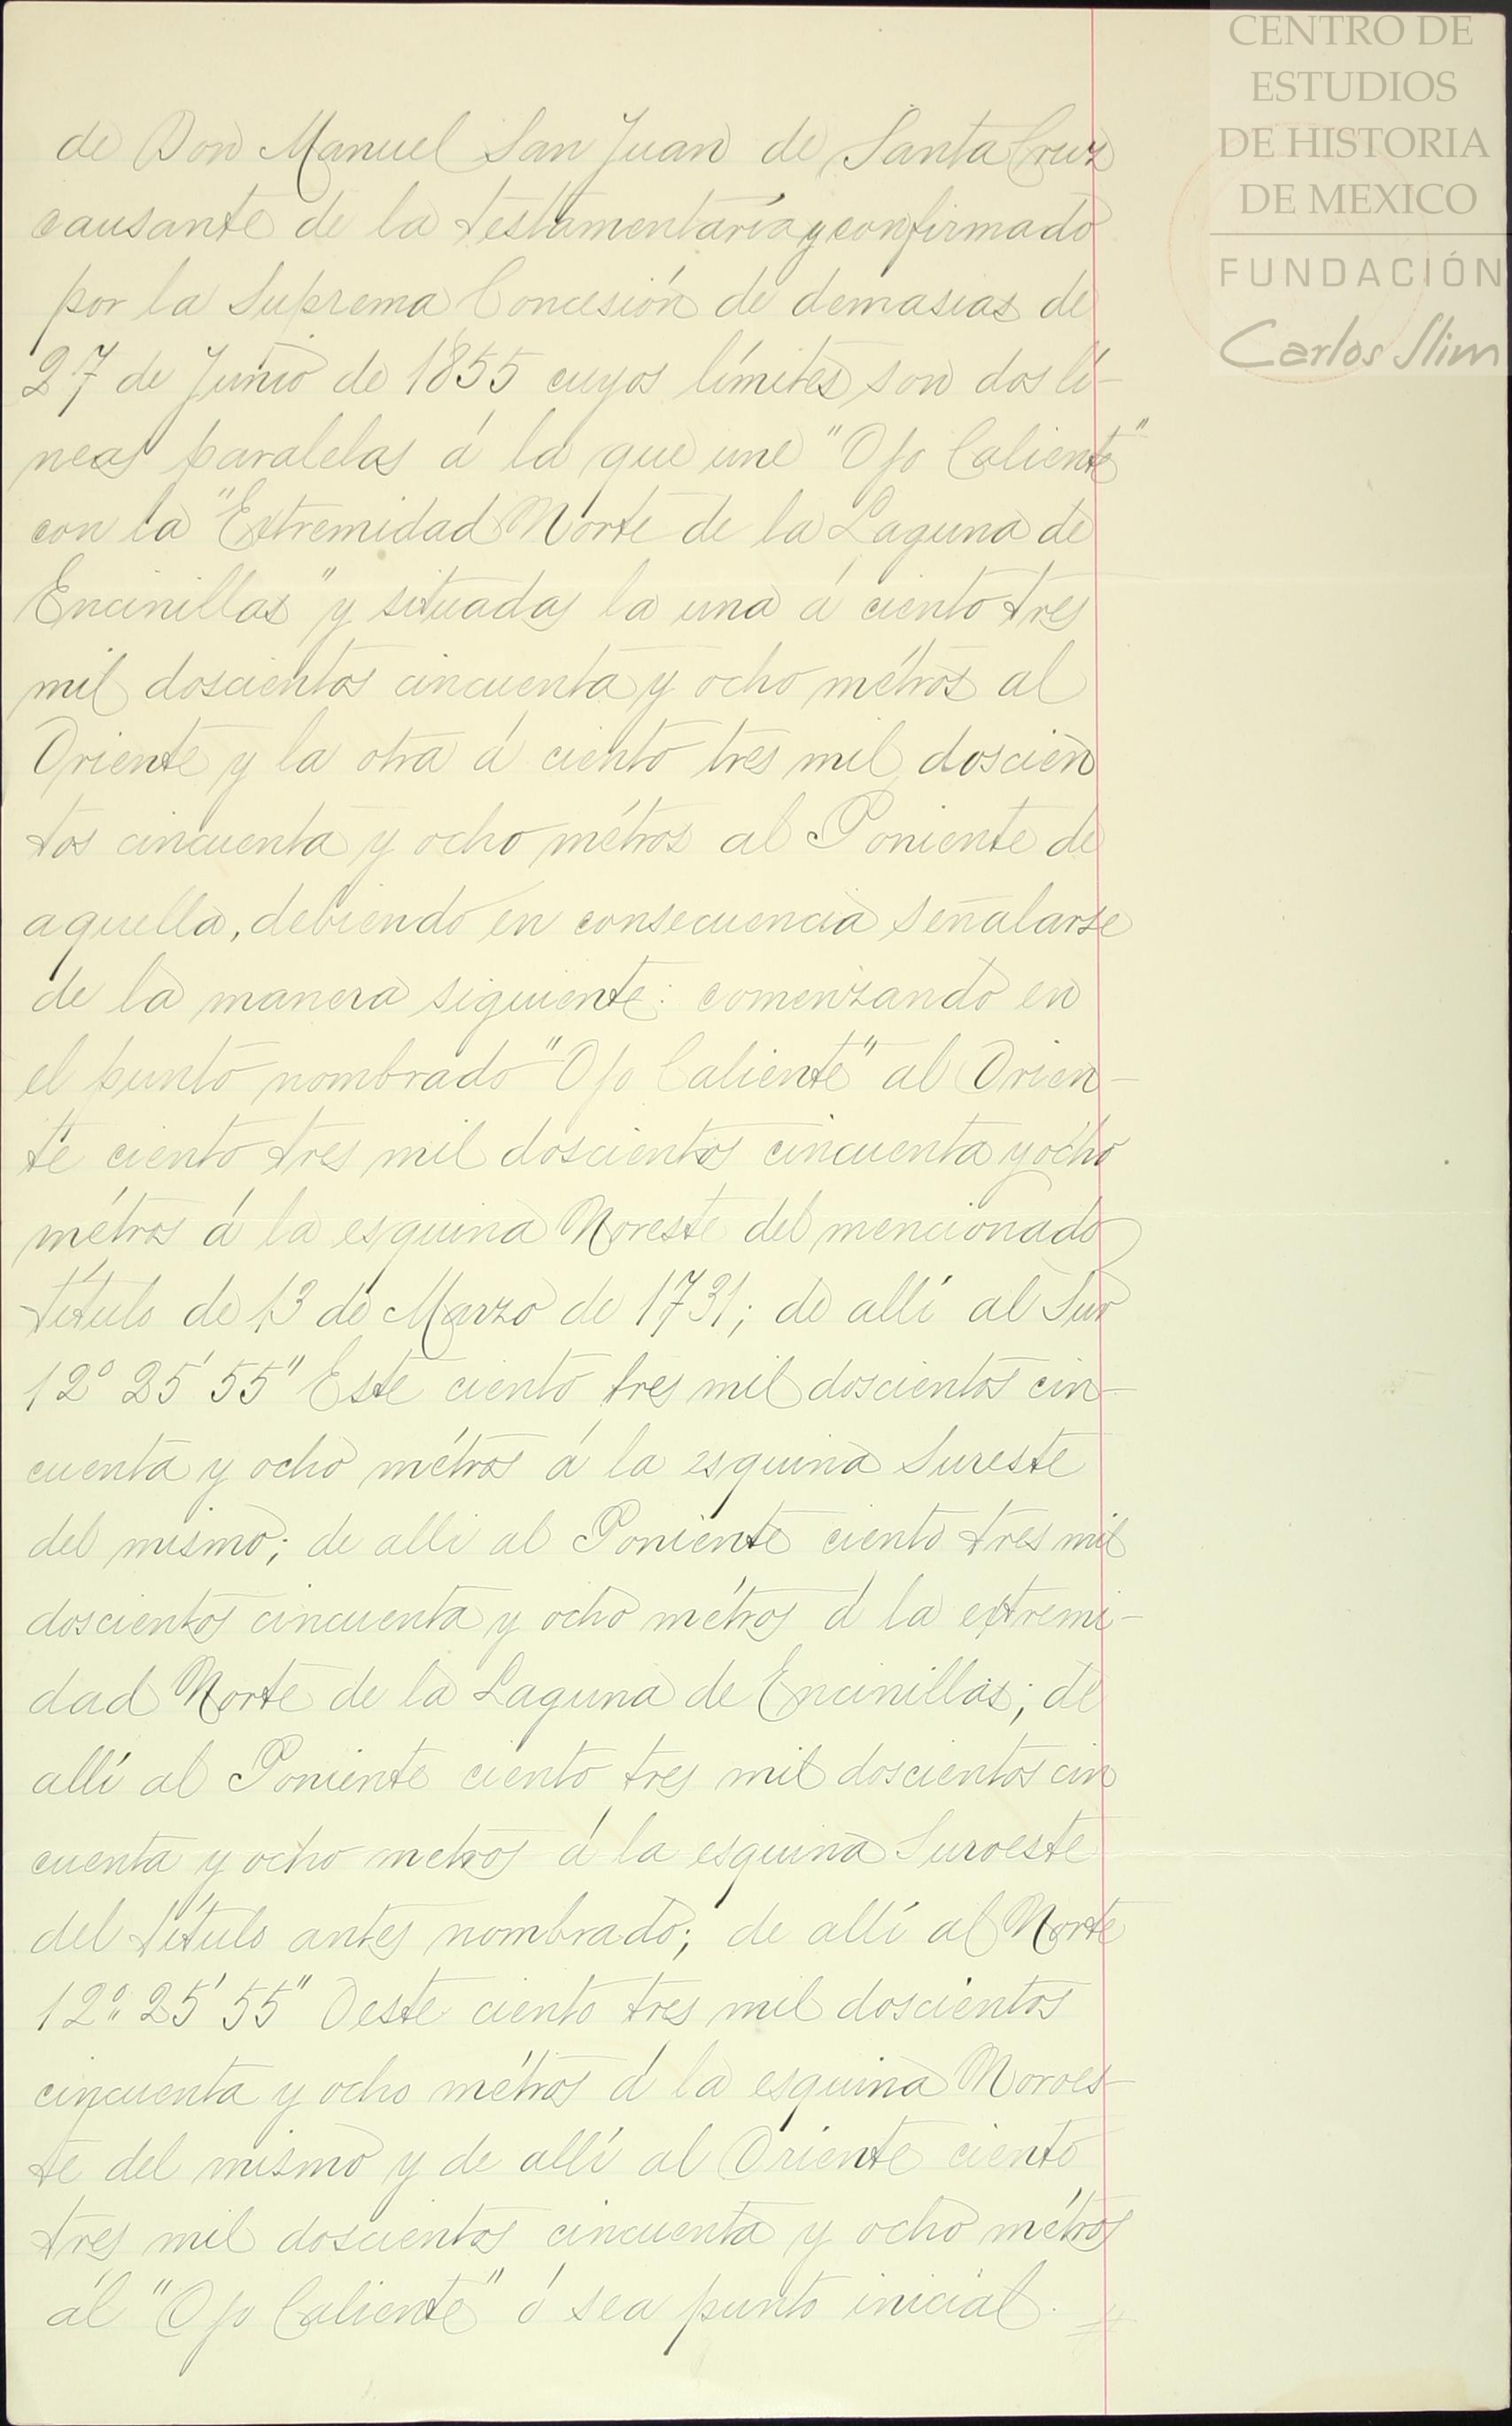 CENTRO DE
ESTUDIOS
DE HISTORIA
DE MEXICO
FUNDACIÓN
Carlos Slim
de Don Manuel San Juan de Santa Cruz
causante de la testamentaría y confirmado
por la Suprema Concesión de demasias de
27 de Junio de 1855 cuyos límites son dos lí-
neas paralelas á la que une "Ojo Caliente"
con la "Extremidad Norte de la Laguna de
Encinillas" y situadas la una á ciento tres
mil doscientos cincuenta y ocho métros al
Oriente y la otra á ciento tres mil doscien
tos cincuenta y ocho métros al Poniente de
aquella, debiendo en consecuencia señalarse
de la manera siguiente: comenzando en
el punto nombrado "Ojo Caliente" al Orien-
te ciento tres mil doscientos cincuenta y ocho
métros á la esquina Noreste del mencionado
título de 13 de Marzo de 1731; de allí al Sur
12° 25' 55" Este ciento tres mil doscientos cin-
cuenta y ocho métros á la esquina Sureste
del mismo; de alli al Poniente ciento tres mil
doscientos cincuenta y ocho métros á la extremi-
dad Norte de la Laguna de Encinillas; de
allí al Poniente ciento tres mil doscientos cin
cuenta y ocho metros á la esquina Suroeste
del título antes nombrado; de allí al Norte
12° 25' 55" Oeste ciento tres mil doscientos
cincuenta y ocho métros á la esquina Noroes-
te del mismo y de allí al Oriente ciento
tres mil doscientos cincuenta y ocho métros
ál "Ojo Caliente" ó sea punto inicial.